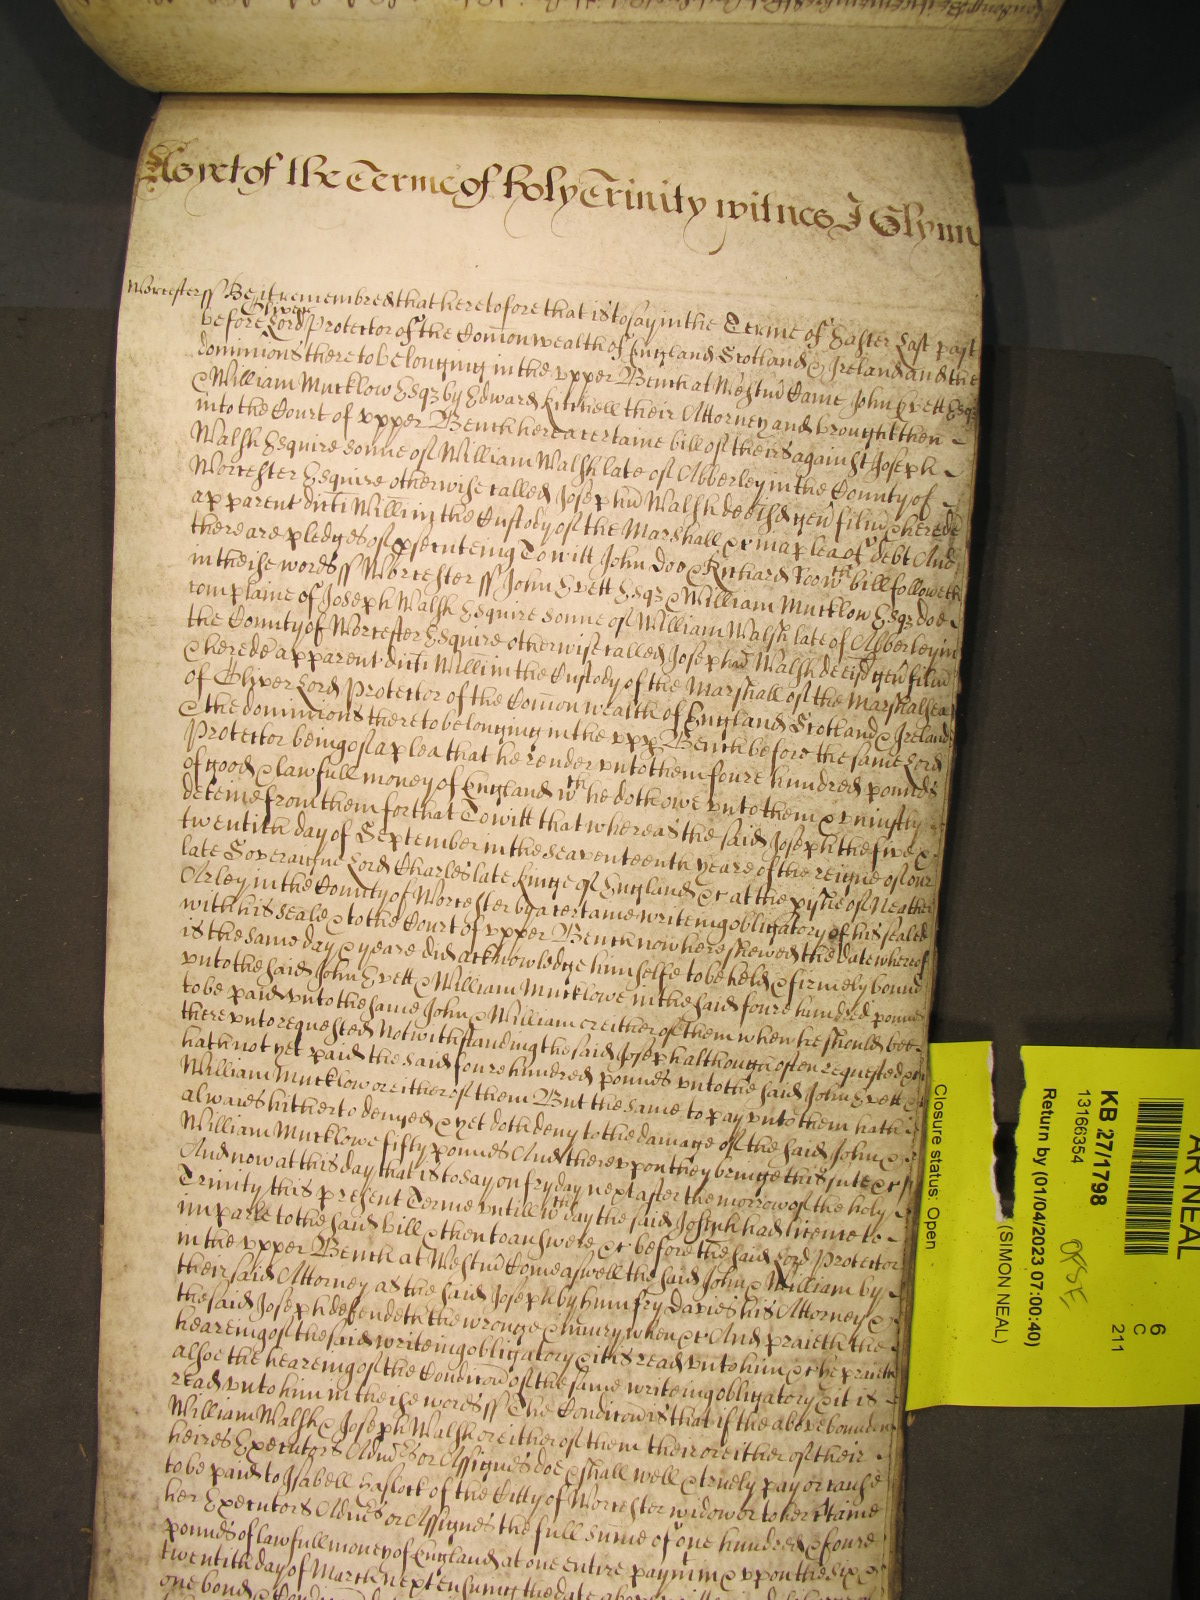 As yet of the Terme of holy Trinity witnes J Glynn
Worcester ss Be it remembred that heretofore that is to say in the Terme of Easter last past
before Oliver Lord Protector of the Comon wealth of England Scotland & Ireland and the
dominions thereto belonging in the vpper Bench at Westm̃ Came John Evett Esqz
& William Mucklow Esqz by Edward Kitchell their Attorney and brought then
into the Court of vpper Bench here a certaine bill of theirs against Joseph
Walsh Esquire sonne of William Walsh late of Abberley in the County of
Worcester Esquire otherwise called Josephũ Walsh de ead geñ filiũ & herede
apparent dicti Willi in the Custody of the Marshall &c in a plea of debt And
there are pledges of prosecuteing To witt John Doo & Richard Roo wch bill followeth
in these words ss Worcester ss John Evett Esqz & William Mucklow Esqz doe
complaine of Joseph Walsh Esquire sonne of William Walsh late of Abberley in
the County of Worcester Esquire otherwise called Josephũ Walsh de ead geñ filiũ
& herede apparent dicti Willi in the Custody of the Marshall of the Marshalsea
of Oliver Lord Protector of the Comon wealth of England Scotland & Ireland
& the dominions thereto belonging in the vpp Bench before the same Lord
Protector being of a plea that he render vnto them foure hundred pounds
of good & lawfull money of England wch he doth owe vnto them & vniustly
deteine from them for that To witt that whereas the said Joseph the five &
twentith day of September in the seaventeenth yeare of the reigne of our
late Soveraigne Lord Charles late kinge of England &c at the pishe of Neather
Arley in the County of Worcester by a certaine writeing obligatory of his sealed
with his seale & to the Court of vpper Bench now here shewed the date whereof
is the same day & yeare did acknowledge himselfe to be held & firmely bound
vnto the said John Evett & William Mucklowe in the said foure hundred pounds
to be paid vnto the same John & William or either of them when he should bee
there vnto requested Notwithstanding the said Joseph although often requested &c
hath not yet paid the said foure hundred pounds vnto the said John Evett &
William Mucklow or either of them But the same to pay vnto them hath
alwaies hitherto denyed & yet doth deny to the damage of the said John &
William Mucklowe fifty pounds And therevpon they bringe this suite &c
And now at this day that is to say on fryday next after the morrow of the holy
Trinity this present Terme vntill wch day the said Joseph had licence to
imparle to the said Bill & then to answere &c before the said Lord Protector
in the vpper Bench at Westm̃ Come aswell the said John & William by
their said Attorney as the said Joseph by humfry Davies his Attorney &
the said Joseph defendeth the wronge & iniury when &c And praieth the
heareing of the said writeing obligatory & it is read vnto him &c he praieth
alsoe the heareing of the Condicõn of the same writeing obligatory & it is
read vnto him in these words ss The Condicõn is that if the above bounden
William Walsh & Joseph Walsh or either of them their or either of their
heires Executors Admrs or Assignes doe & shall well & truely pay or cause
to be paid to Isabell Haslock of the Citty of Worcester widow or to her certaine
her Executors Admrs or Assignes the full summe of one hundred & foure
pounds of lawfull money of England at one entire paymt in & vpon the six &
twentith day of March next ensuing the date
one bond &
AR NEAL
KB 27/1798
13166354
Return by (01/04/2023 07:00:40)
(SIMON NEAL)
Closure status: Open
6
C
211